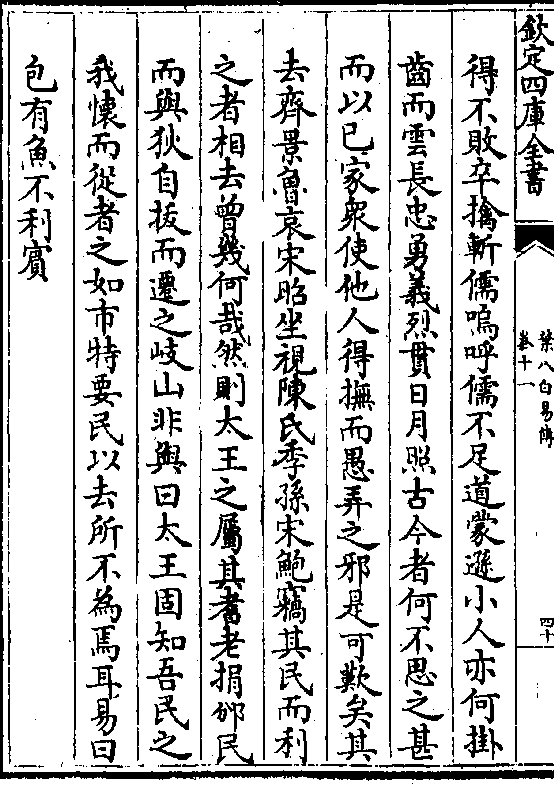 欽定四庫全書
葉八白易傳
卷十一
四十
得不敗卒擒斬儒嗚呼儒不足道蒙遜小人亦何掛
齒而雲長忠勇義烈貫日月照古今者何不思之甚
而以已家衆使他人得撫而愚弄之邪是可歎矣其
去齊景魯哀宋昭坐視陳氏季孫宋鮑竊其民而利
之者相去曾幾何哉然則太王之屬其耆老捐邠民
而與狄自拔而遷之岐山非與曰太王固知吾民之
我懷而從者之如市特要民以去所不為焉耳易曰
包有魚不利賓